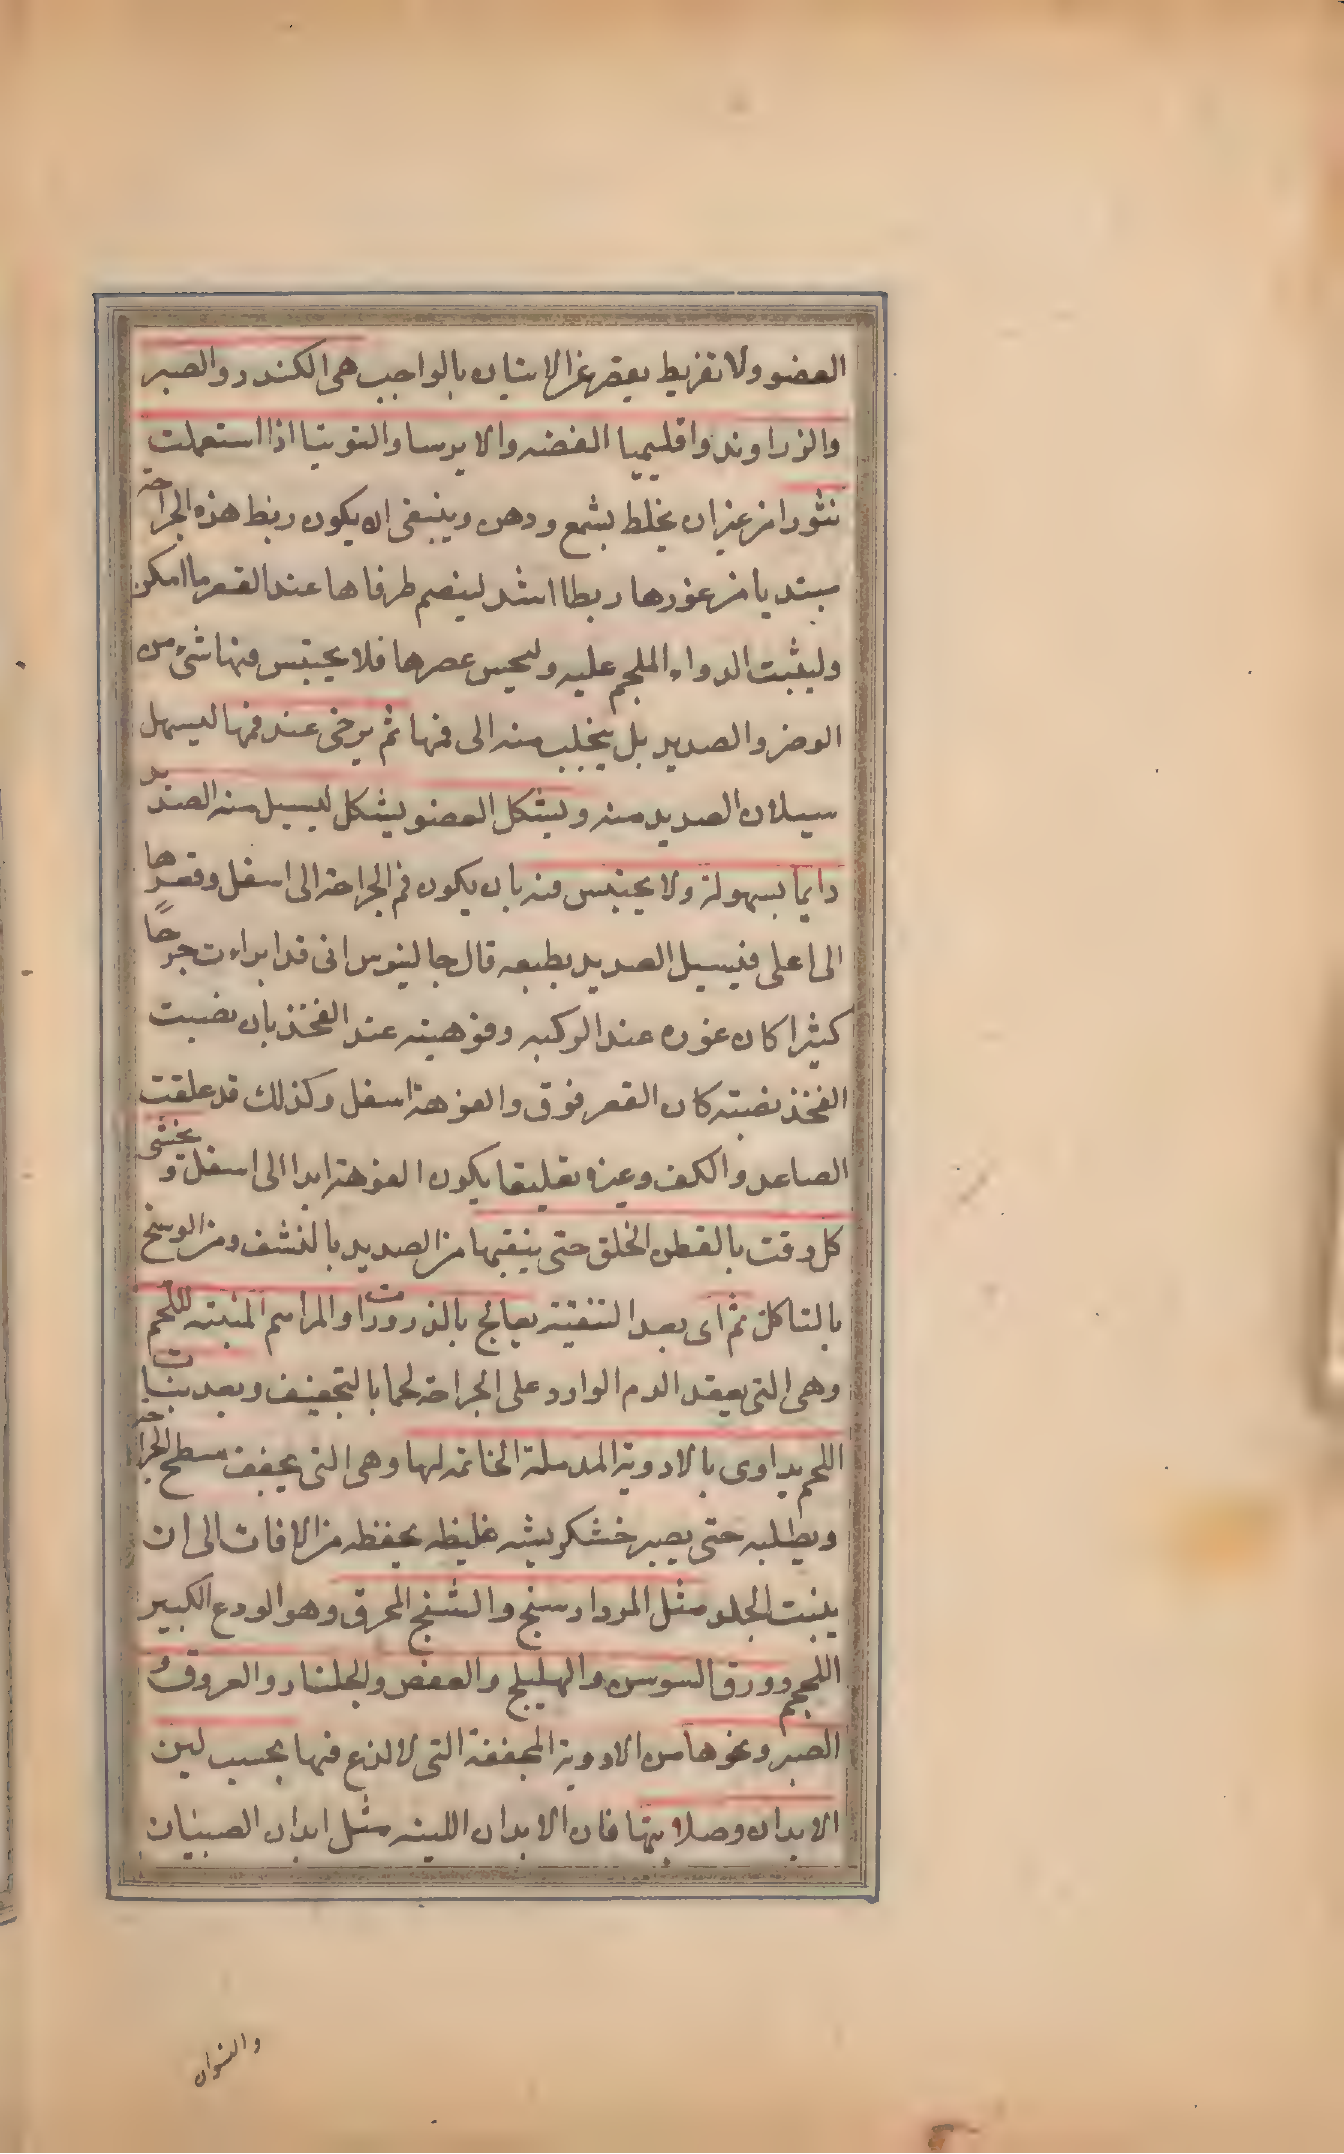 العضو ولا تفريط يقصر عن الانبات بالواجب هى الكندر والصبر
والزراوند واقليميا الفضه والايرسا والتوتيا اذا استعملت
نثورا من غيران يخلط بشمع ودهن وينبغى ان يكون ربط هذه الجراحة
مبتديا من غورها ربطا اشد لينضم طرفاها عند القعر ما امكن
وليثبت الدواء الملحم عليه وليحس عصرها فلا يحتبس فيها شئ من
الوضر والصديد بل ينجلب منه الى فمها ثم يرخى عند فمها ليسهل
سيلان الصديد منه ويشكل العضو بشكل ليسيل منه الصديد
دايما بسهولة ولا يحتبس فيه بان يكون فم الجراحة الى اسفل وقعرها
الى اعلى فيسيل الصديد بطبعه قال جالينوس انى قد ابراءت جرحًا
كثيرا كان غوره عند الركبه وفوهيته عند الفخذ بان نصبت
الفخذ نصبته كان القعر فوق والفوهة اسفل وكذلك قد علقت
الصاعد والكف وغيره تعليقا يكون الفوهة ابدا الى اسفل و يخشى
كل وقت بالقطن الخلق حتى ينقيها من الصديد بالنشف ومن الوسخ
بالتاكل ثم اى بعد التنقية يعالج بالذرورات والمراسم المنبته للحم
وهى التى يعقد الدم الوارد على الجراحة لحما بالتجفيف وبعد نبات
اللحم يداوى بالادوية المدملة الخاتمة لها وهى التى يجفف سطح الجراحة
ويصلبه حتى يصير خشكريشه غليظه يحفظه من الافات الى ان
ينبت الجلد مثل المرداسنج والشنج المحرق وهو الودع الكبير
اللججم وورق السوس والهليلج والعفص والجلنار والعروق و
الصبر ونحوها من الادوية المجففة التى لا لذع فيها بحسب لين
الابدان وصلابتها فان الابدان اللينه مثل ابدان الصبيان
والنسوان